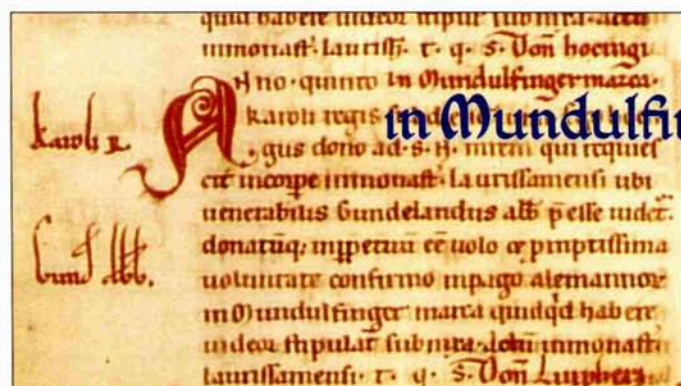 quid habere uideor stipul subnixa. actū
inmonast. Laurissh. t. q. s. Von hoeingi
ANno. quinto in Mundulfinger marca.
karoli regis
karoli r̄.
in Mundulfin
gus dono ad. s. N. mirem qui requies
cit incorpe inmonast. laurissamensi ubi
uenerabilis Gundelandus abb p̄esse uidet.
Gund abb.
donatūq; inp̄petuū eē uolo ⁊ promptissima
uoluntate confirmo inpago alemannor
in Mundulfinger marca quidqd habere
uideor stipulat subnixa. Actū inmonast.
laurissamensi. t. q. s. Von Luiphers